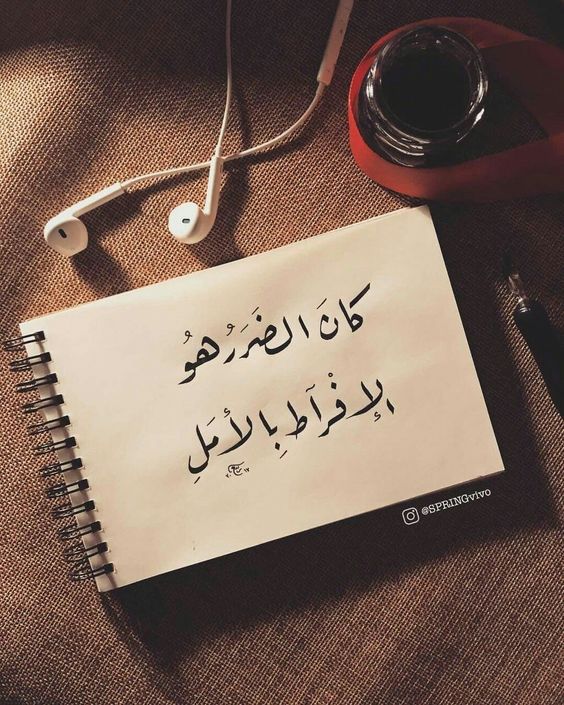 كانَ الضَرَرُ هوُ
الإفْرآطِ بِالأمَلِ
@SPRINGvivo